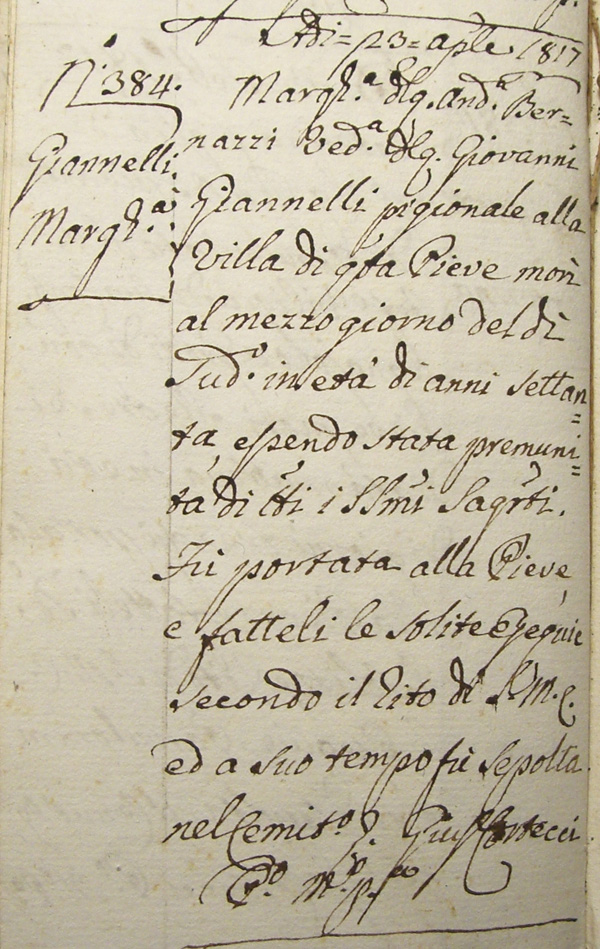 Adi = 23 = aple 1817
N.º 384.
Giannelli
Margh.ª
Margh.ª dlq. And.ª Ber=
nazzi Ved.ª dlq. Giovanni
Giannelli pigionale alla
Villa di qta Pieve morì
al mezzo giorno del dì
Sud.º in età di anni settan
=
ta, essendo stata premuni
=
ta di tti i SSmi Sagrti.
Fù portata alla Pieve,
e fatteli le solite Esequie
secondo il Rito di S. M. C.
ed a suo tempo fù sepolta
nel Cemit.º
P.º m.º p.ª